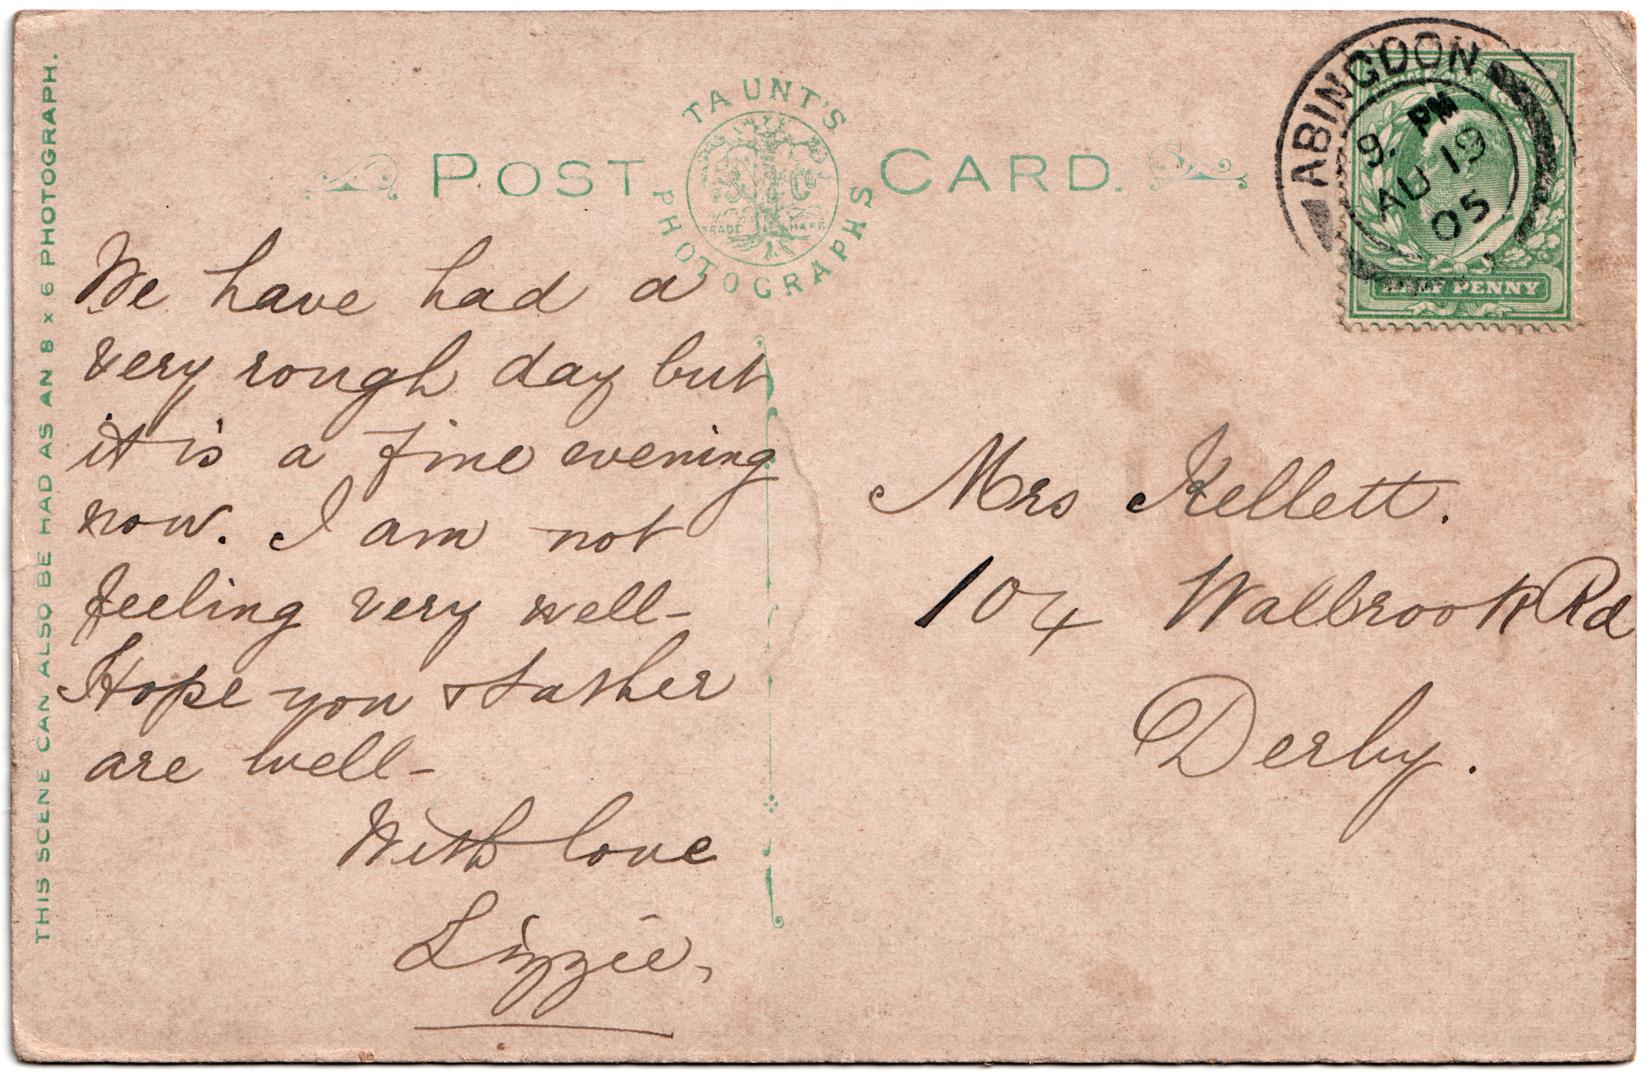 THIS SCENE CAN ALSO BE HAD AS AN 8 x 6 PHOTOGRAPH.
POST CARD.
TAUNT'S
& Co
TRADE MARK
PHOTOGRAPHS
ABINGDON
9. PM
AU 19
05
HALF PENNY
We have had a
very rough day but
it is a fine evening
now. I am not
feeling very well-
Hope you & father
are well-
With love
Lizzie,
Mrs Kellett.
104 Walbrook Rd
Derby.